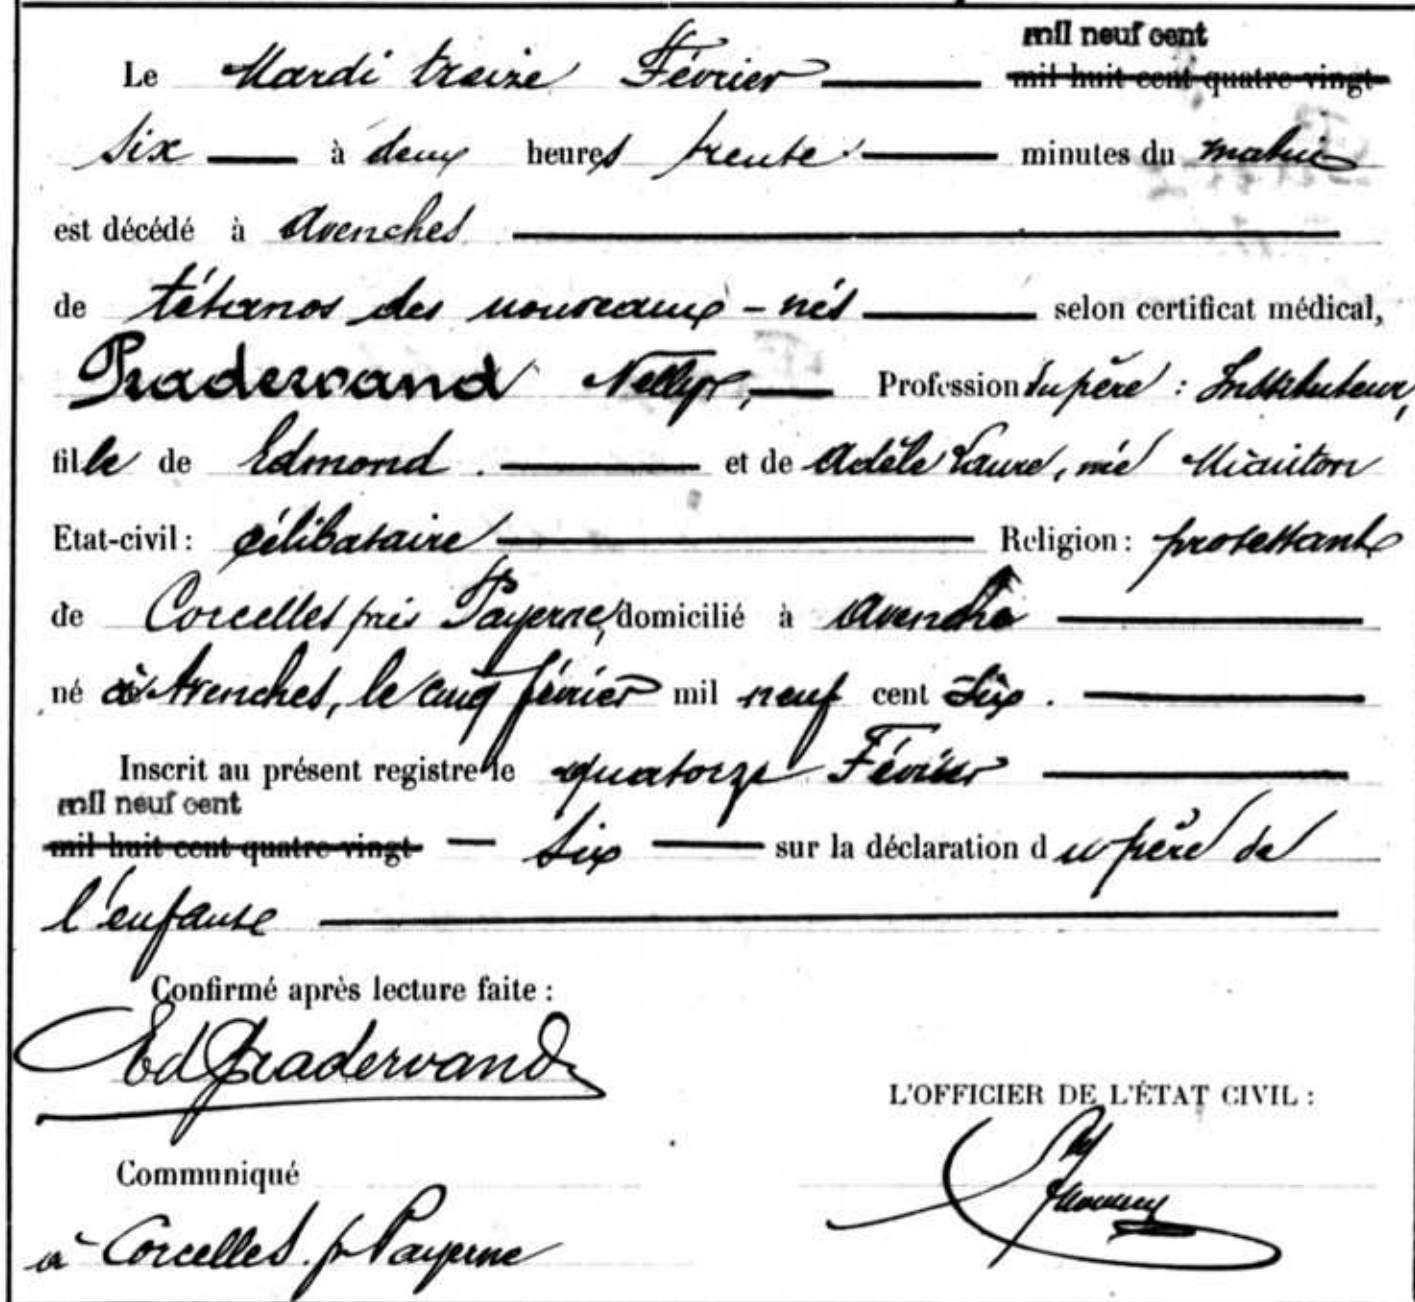 mil neuf cent
Le Mardi treize Février mil huit cent quatre-vingt
six à deux heures trente minutes du matin
est décédé à Avenches
de tétanos des nouveaux-nés selon certificat médical,
Pradervand Nelly, Profession du père : Instituteur,
fille de Edmond. et de Adèle Laure, née Miauton
Etat-civil : célibataire Religion : protestante
de Corcelles près Payerne, domicilié à Avenches
né à Avenches, le cinq février mil neuf cent six.
Inscrit au présent registre le quatorze Février
mil neuf cent
mil huit cent quatre-vingt six sur la déclaration du père de
l'enfant
Confirmé après lecture faite :
Ed Pradervand
L'OFFICIER DE L'ÉTAT CIVIL :
Communiqué
à Corcelles p. Payerne